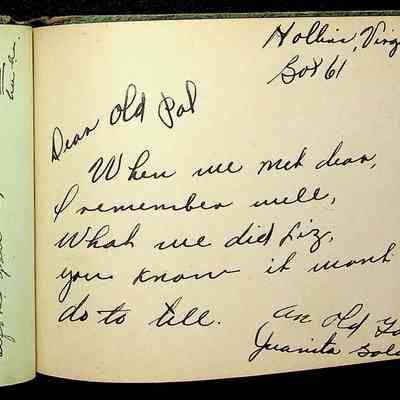 Hollins, Virg
Box 61
Dear Old Pal
When we met dear,
I remember well,
What we did Liz,
you know it wont
do to tell.
An Old
Juanita